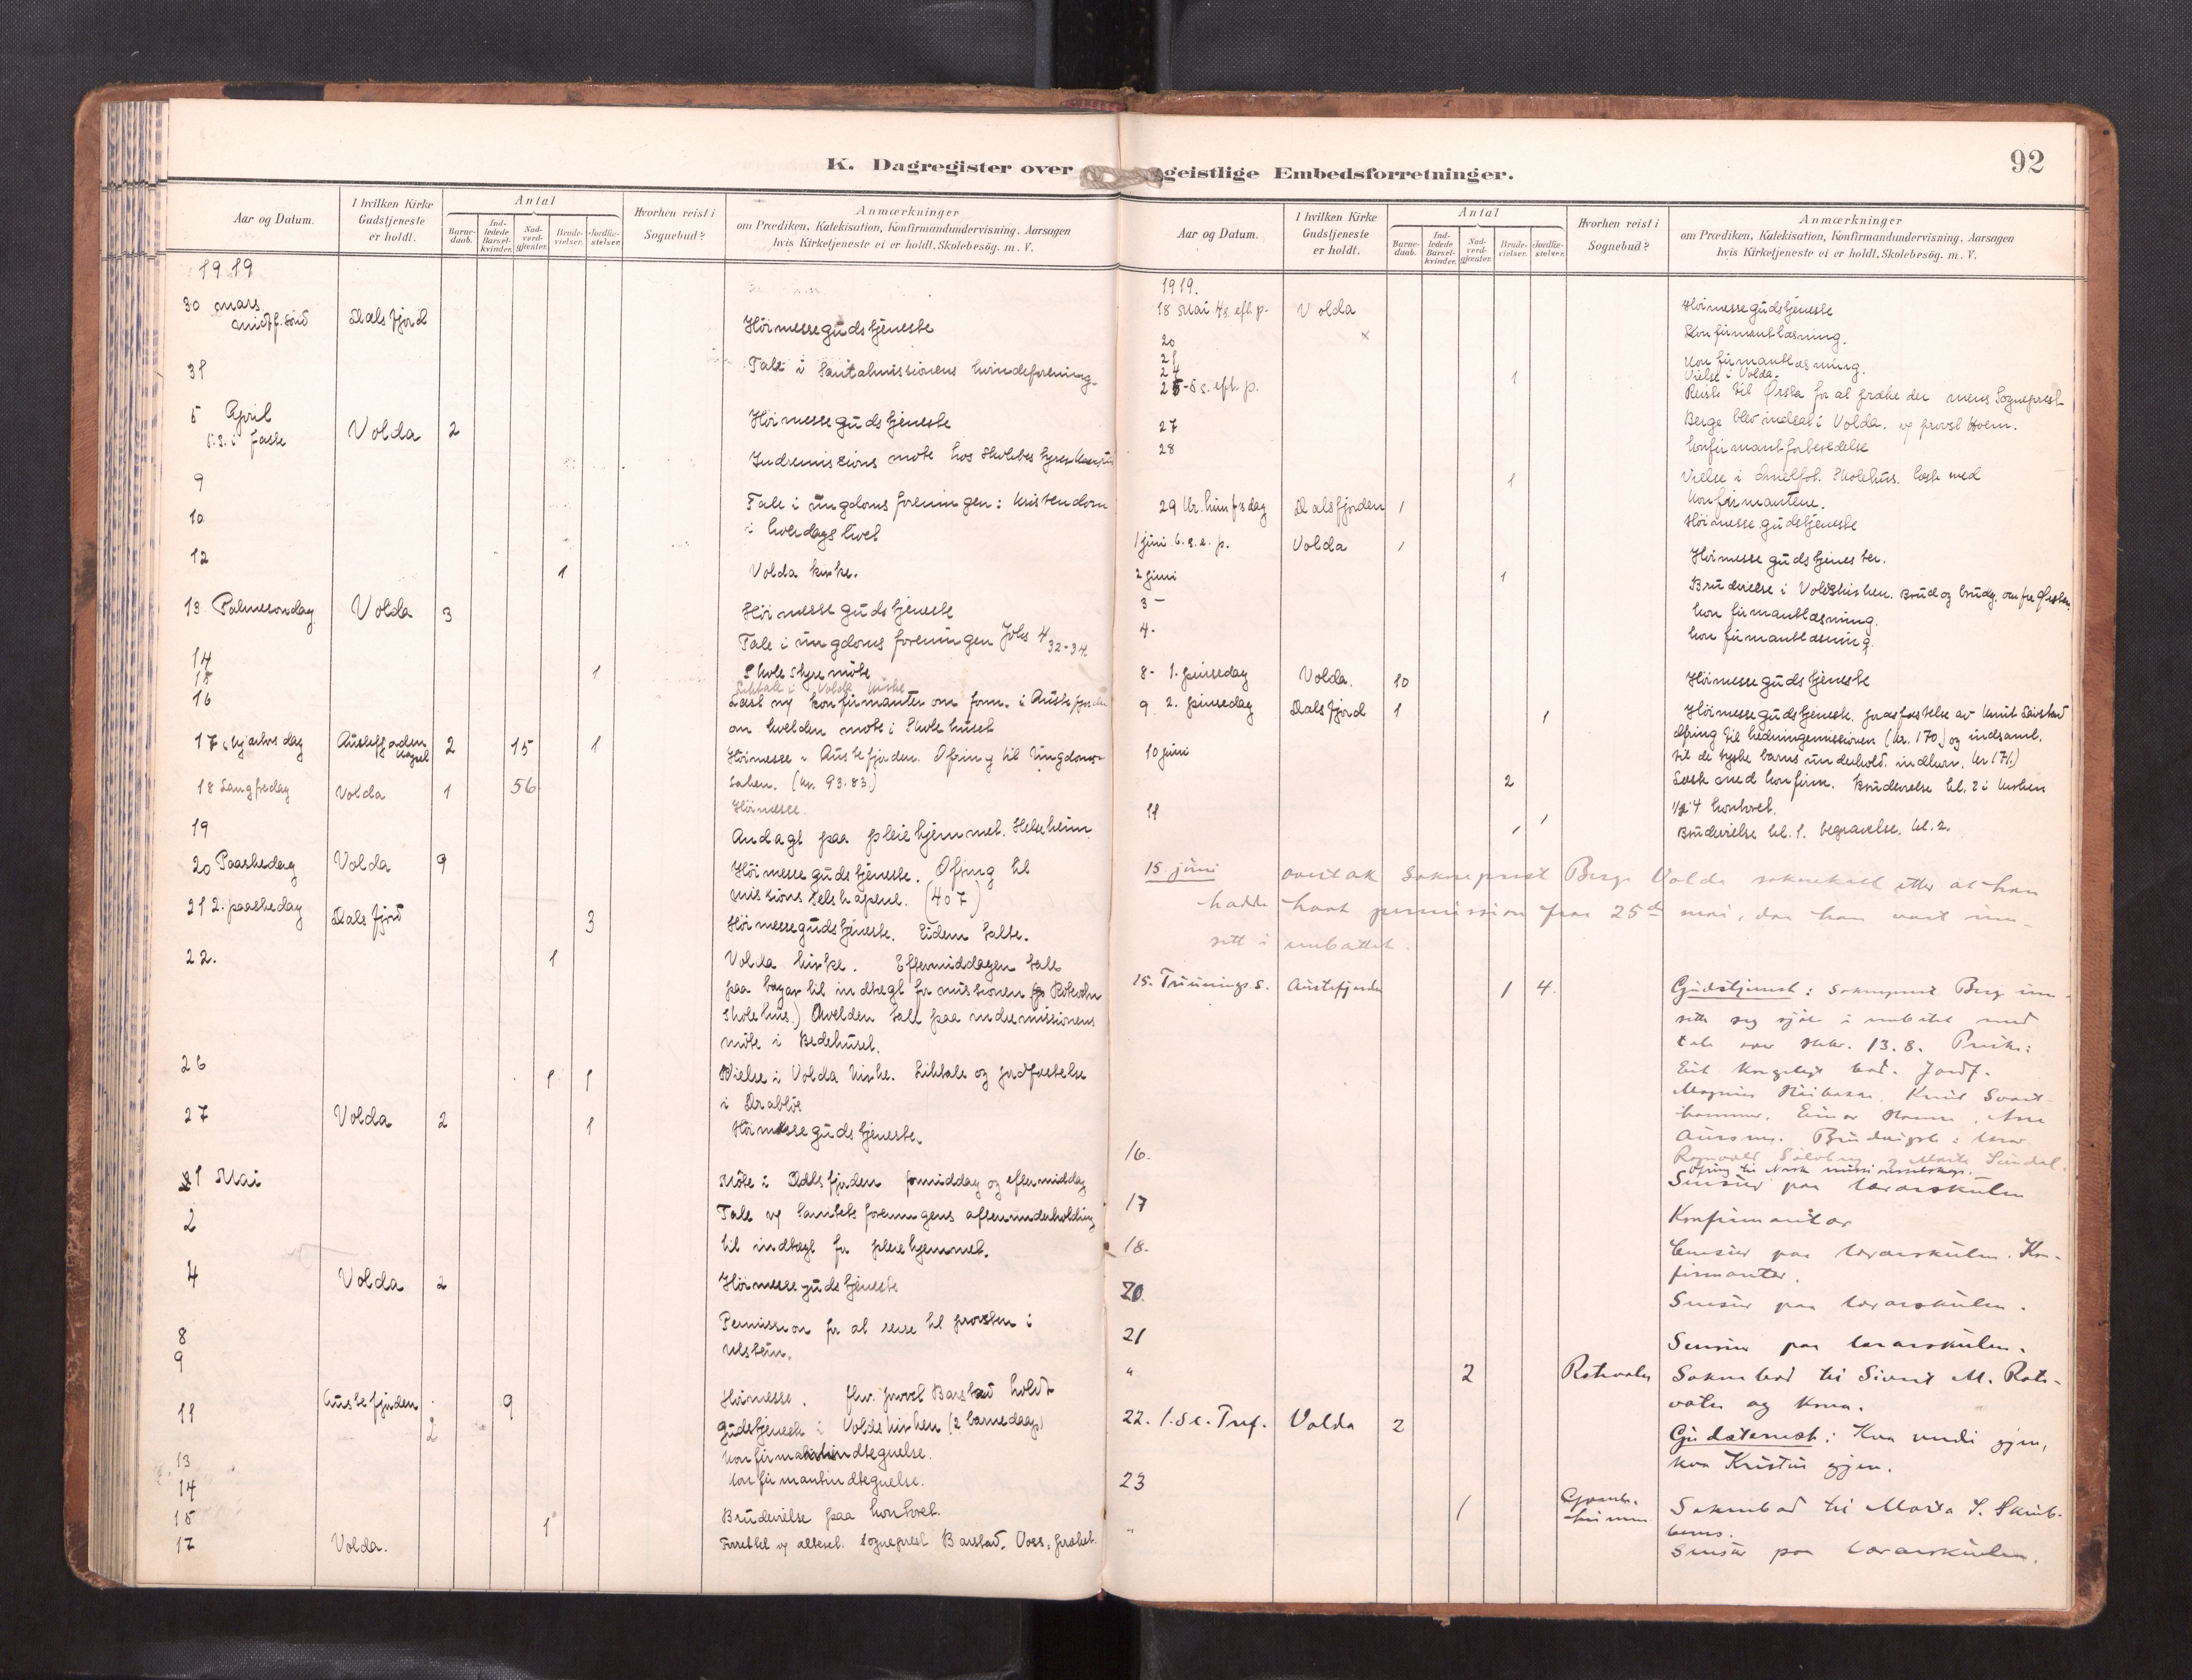 K. Dagregister over geistlige Embedsforretninger.
92
Aar og Datum.
I hvilken Kirke Gudstjeneste er holdt.
Antal
Barne-daab.
Ind-ledede Barsel-kvinder.
Nad-verd-gjester.
Brude-vielser.
Jordfæ-stelser.
Hvorhen reist i Sognebud?
Anmærkninger
om Prædiken, Katekisation, Konfirmandundervisning, Aarsagen
hvis Kirketjeneste ei er holdt, Skolebesög. m. V.
1919
30 mars midtf. sönd Dalsfjord Höimessegudstjeneste
31 Tale i Santalmissionens kvindeforening
5 April 5. s. i faste Volda 2 Höimessegudstjeneste
Indremissions møte hos Skolebestyrer
9 Tale i ungdomsforeningen: Kristendom
10 i hverdagslivet
12 1 Volda kirke.
13 Palmesondag Volda 3 Höimessegudstjeneste
Tale i ungdomsforeningen Johs 4 32-34
14 Skolestyremöte
15 1 Liktale i Volda kirke
16 Læst m konfirmanter om form. i Austefjorden
om kvelden möte i Skolehuset
17 Skjærtorsdag Austefjorden 2 15 1 Höimesse i Austefjorden. Ofring til Ungdoms-
saken. (kr. 93.83)
18 Langfredag Volda 1 56 Höimesse.
19 Andagt paa pleiehjemmet. Heleheim
20 Paaskedag Volda 9 Höimessegudstjeneste. Ofring til
missionsselskapene. (407)
21 2. paaskedag Dalsfjord 3 Höimessegudstjeneste. Eidem talte.
22. 1 Volda kirke. Eftermiddagen tale
paa bazar til indtægt for missionen (Rotevatn
Skolehus.) Kvelden tale paa indremissionens
möte i Bedehuset.
26 1 1 Vielse i Volda kirke. Liktale og jordfæstelse
i Drablös
27 Volda 2 1 Höimessegudstjeneste.
1 Mai Möte i Dalsfjorden formiddag og eftermiddag
2 Tale v Sanitetsforeningens aftenunderholdning
til indtægt for pleiehjemmet.
4 Volda 2 Höimessegudstjeneste
8 Permission for at reise til provsten i
9 Ulstein.
11 Austefjorden 9 Höimesse. fhv. provst Barstad holdt
2 Gudstjeneste i Voldskirken (2 barnedaap)
13 Konfirmantindtegnelse.
14 Konfirmantindtegnelse.
15 1 Brudevielse paa kontoret.
17 Volda. Forrettet v alteret. Sogneprest Barstad, Voss, præket.
1919.
18 Mai 4s. eft p. Volda Höimessegudstjeneste
20 Konfirmantlæsning.
21 Konfirmantlæsning.
24 1 Vielse i Volda.
25 - 5 s. eft. p. Reiste til Ørsta for at præke der mens Sogneprest
27 Berge blev indsat i Volda. v provst Hoem.
28 Konfirmantforberedelse
1 Vielse i Skolehus. Læste med
Konfirmantene.
29 Kr. himf. dag Dalsfjorden 1 Höimessegudstjeneste
1 juni 6. s. e. p. Volda 1 Höimessegudstjenester.
2 juni 1 Brudevielse i Voldskirken. Brud og brudg. om fra Ørsten.
3 - konfirmantlæsning.
4. konfirmantlæsning
8 - 1. pinsedag Volda. 10 Höimessegudstjeneste
9 2. pinsedag Dalsfjord 1 1 Höimessegudstjeneste. Jordfæstelse av Knut Leirstad
Ofring til hedningemissionen (kr. 170.) og indsaml.
10 juni til de tyske barns underhold. indkom. kr 171.)
2 Læste med konfirm. Brudevielse kl. 2 i kirken
1/2 4 kontoret.
11 1 1 Brudevielse kl. 1. begravelse. kl. 2.
15. juni overtok Sokneprest Berge Volda soknekall etter at han
hadde havt permission fraa 25de mai, daa han vart inn-
sett i embættet.
15. Trinnings. s. Austefjorden 1 4. Gudstjenest: Sokneprest Berge inn-
sette seg sjölv i embætet med
tale over Hebr. 13.8. Preike:
Eit kongelegt bod. Jordf.
Magnus Knut Svart-
hammar. Einar
Brudvigsle:
Ragnvald og Marta
Ofring til Norsk missionsselskap.
16. Sensur paa lærarskulen
17 Konfirmantar
18. Censur paa lærarskulen. Kon-
firmantar.
20. Sensur paa lærarskulen.
21 Sensur paa lærarskulen.
" 2 Rotevatn Soknebod til Sivert M. Rote-
vatn og kona.
22. 1. S. e. Tref. Volda 2 Gudstenest: Kva verdi gjev,
kva Kristus gjev.
23 1 Soknebod til Marta S.
" Sensur paa lærarskulen.